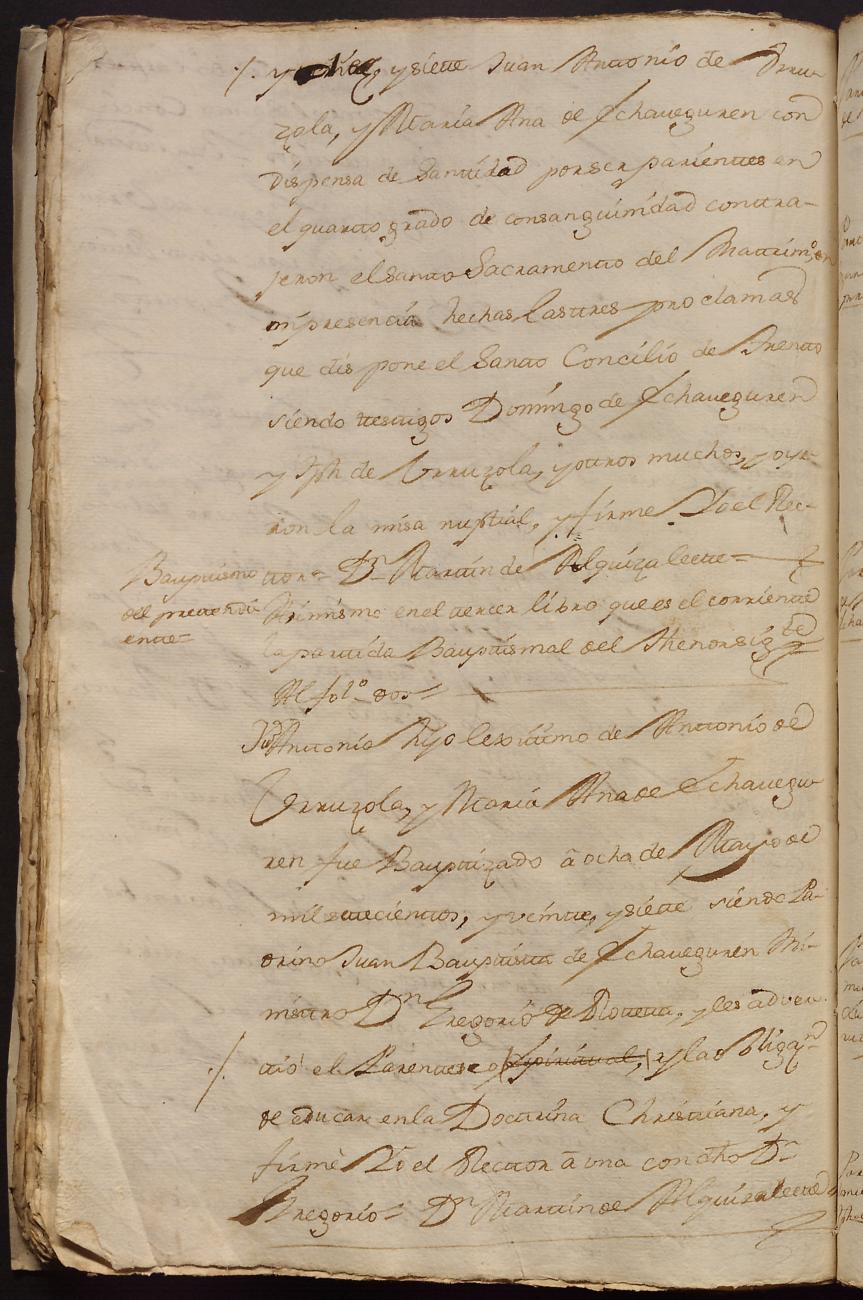 y diez, y siette Juan Anttonio de Urru-
zola, y Maria Ana de Echaveguren con
dispensa de Santtidad por ser parienttes en
el quartto grado de consanguinidad conttra-
jeron el santto Sacramentto del Mattrim.º en
mi presencia hechas las ttres proclamas
que dispone el Santto Concilio de Trentto
siendo ttesttigos Domingo de Echaveguren
y Jph de Urruzola, y ottros muchos, y oye-
ron la misa nuptial, y firme Yo el Rec-
ttor= Dn Marttin de Alquizalette=
Bauptismo
del prettendi
entte=
Asimismo en el ttercer libro que es el corriente
la parttida Bauptismal del thenor sigte
Al fol.º dos=
Jun Anttonio hijo lexittimo de Anttonio de
Urruzola, y Maria Ana de Echavegu-
ren fue Bauptizado â ocho de Mayo de
mil settecienttos, y veintte, y siette siendo Pa-
drino Juan Bauptistta de Echaveguren Mi-
nisttro Dn Gregorio de Rotetta, y les adver-
ttiô el Parenttesco (Spirittual,) y la Obligazn
de educar en la Docttrina Christtiana, y
firmè Yo el Recttor â una con dho Dn
Gregorio= Dn Marttin de Alquizalette